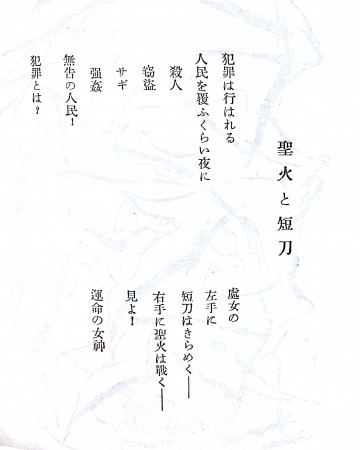 聖火と短刀
犯罪は行はれる
人民を覆ふくらい夜に
殺人
窃盗
サギ
强姦
無告の人民!
犯罪とは?
處女の
左手に
短刀はきらめく──
右手に聖火は戰く──
見よ!
運命の女神